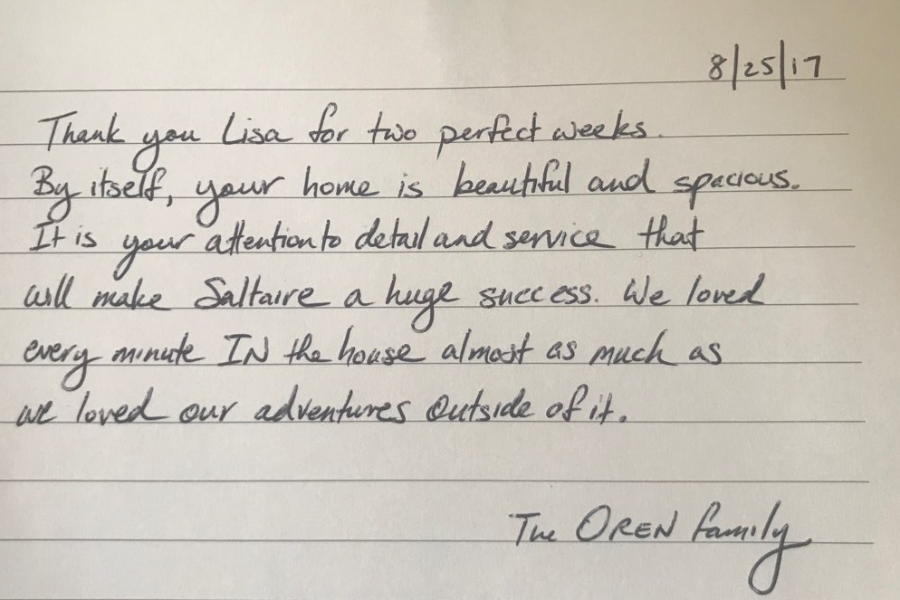 8/25/17
Thank you Lisa for two perfect weeks.
By itself, your home is beautiful and spacious.
It is your attention to detail and service that
will make Saltaire a huge success. We loved
every minute IN the house almost as much as
we loved our adventures outside of it.
The OREN family